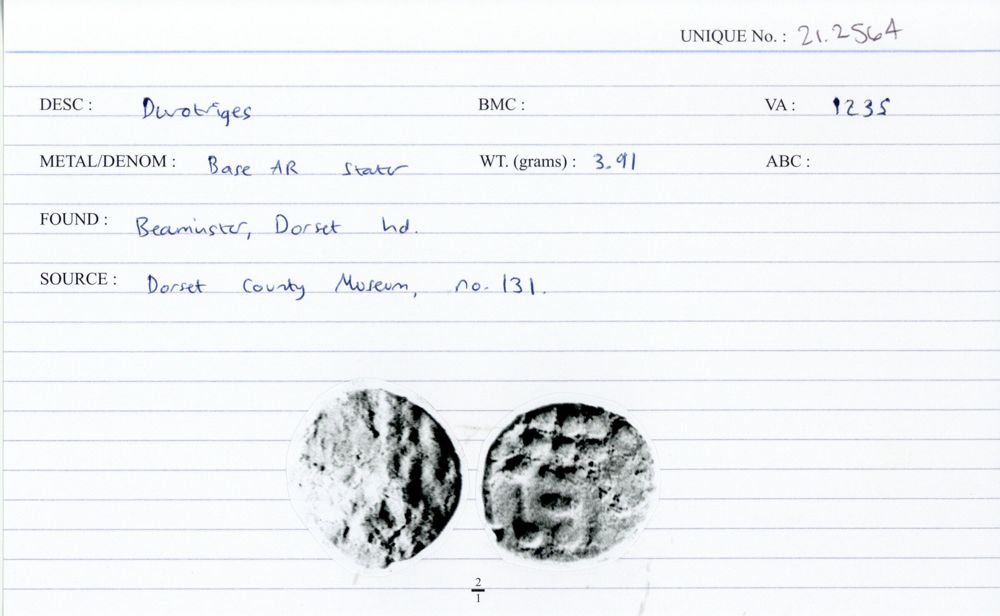 UNIQUE No. : 21.2564
DESC : Durotriges BMC : VA : 1235
METAL/DENOM : Base AR Stater WT. (grams) : 3.91 ABC :
FOUND : Beaminster, Dorset hd.
SOURCE : Dorset County Museum, no. 131.
2
1